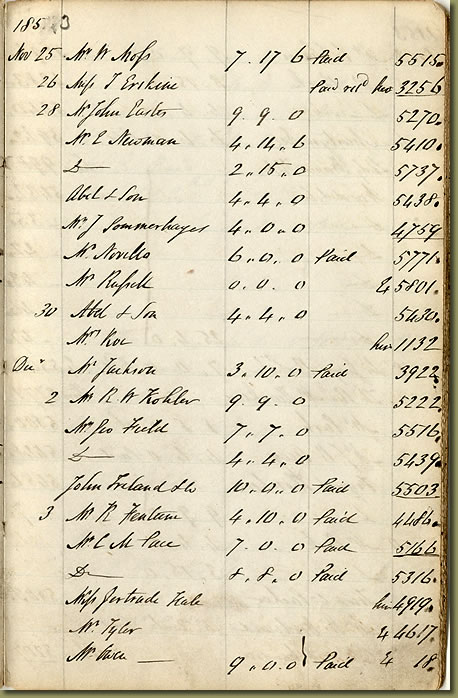 185
Nov 25 Mr W Moss 7.17.6 Paid 5515.
26 Miss T Erskine Paid retd hire 3256
28 Mr John Easter 9.9.0 5270.
Mr E Newman 4.14.6 5410.
Do 2.15.0 5737.
Abel & Son 4.4.0 5438.
Mr J Sommerhayes 4.0.0 4759
Mr Novello 6.0.0 Paid 5771.
Mr Russell 0.0.0 & 5801.
30 Abel & Son 4.4.0 5430.
hire 1132
Decr Mr Jackson 3.10.0 Paid 3922.
2 Mr R W Kohler 9.9.0 5222.
Mr Geo Field 7.7.0 5516.
Do 4.4.0 5439.
John Ireland & Co 10.0.0 Paid 5503
3 Mr R Fentum 4.10.0 Paid 4486.
Mr C M Pace 7.0.0 Paid 5166
Do 8.8.0 Paid 5316.
Miss Gertrude hire 4919.
Mr Tyler & 4617.
Mr Owen — 9.0.0 Paid & 18.